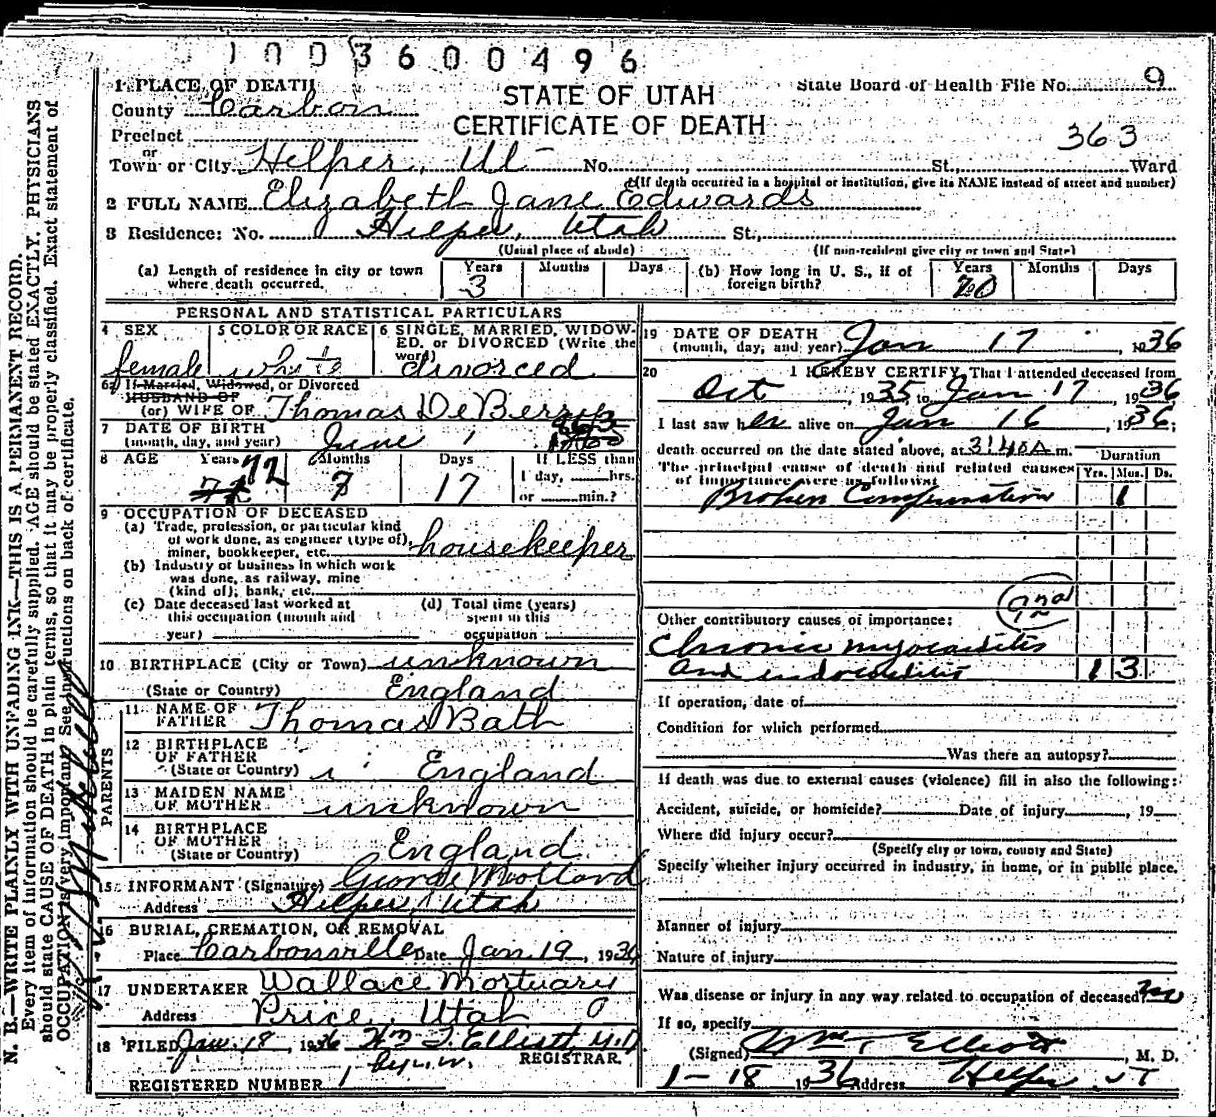 1003600496
1 PLACE OF DEATH
State Board of Health File No. 9
STATE OF UTAH
County Carbon
CERTIFICATE OF DEATH
Precinct
363
or
Town or City Helper, Ut No. St., Ward
(If death occurred in a hospital or institution, give its NAME instead of street and number)
2 FULL NAME Elizabeth Jane Edwards
3 Residence: No. Helper, Utah St.,
(Usual place of abode) (If non-resident give city or town and State)
(a) Length of residence in city or town where death occurred. Years 3 Months Days
(b) How long in U. S., if of foreign birth? Years 20 Months Days
PERSONAL AND STATISTICAL PARTICULARS
4 SEX female
5 COLOR OR RACE white
6 SINGLE, MARRIED, WIDOWED, or DIVORCED (Write the word) divorced
6a If Married, Widowed, or Divorced
HUSBAND OF
(or) WIFE OF Thomas DeBerry
7 DATE OF BIRTH
(month, day, and year) June 1
8 AGE Years 72 Months 7 Days 17 If LESS than
1 day, hrs.
or min.?
9 OCCUPATION OF DECEASED
(a) Trade, profession, or particular kind
of work done, as engineer (type of),
miner, bookkeeper, etc. housekeeper
(b) Industry or business in which work
was done, as railway, mine
(kind of), bank, etc.
(c) Date deceased last worked at
this occupation (month and
year)
(d) Total time (years)
spent in this
occupation
10 BIRTHPLACE (City or Town) unknown
(State or Country) England
PARENTS
11 NAME OF
FATHER Thomas Bath
12 BIRTHPLACE
OF FATHER
(State or Country) England
13 MAIDEN NAME
OF MOTHER unknown
14 BIRTHPLACE
OF MOTHER
(State or Country) England
15 INFORMANT (Signature) George
Address Helper, Utah
16 BURIAL, CREMATION, OR REMOVAL
Place Carbonville Date Jan 19, 1936
17 UNDERTAKER Wallace Mortuary
Address Price, Utah
18 FILED Jan. 18, 1936 Wm F. Elliott M.D
REGISTRAR.
REGISTERED NUMBER 1
19 DATE OF DEATH
(month, day, and year) Jan 17 1936
20 I HEREBY CERTIFY, That I attended deceased from
Oct, 1935 to Jan 17, 1936
I last saw her alive on Jan 16, 1936;
death occurred on the date stated above, at 3:40 A m.
The principal cause of death and related causes
of importance were as follows:
Duration
Yrs. Mos. Ds.
Broken Compensation 1
2nd
Other contributory causes of importance:
Chronic myocarditis
and endocarditis 1 3
If operation, date of
Condition for which performed
Was there an autopsy?
If death was due to external causes (violence) fill in also the following:
Accident, suicide, or homicide? Date of injury, 19
Where did injury occur?
(Specify city or town, county and State)
Specify whether injury occurred in industry, in home, or in public place.
Manner of injury
Nature of injury
Was disease or injury in any way related to occupation of deceased? no
If so, specify
(Signed) Wm. Elliott, M. D.
1-18 1936 Address Helper UT
N. B.—WRITE PLAINLY WITH UNFADING INK—THIS IS A PERMANENT RECORD.
Every item of information should be carefully supplied. AGE should be stated EXACTLY. PHYSICIANS
should state CAUSE OF DEATH in plain terms, so that it may be properly classified. Exact statement of
OCCUPATION is very important. See instructions on back of certificate.